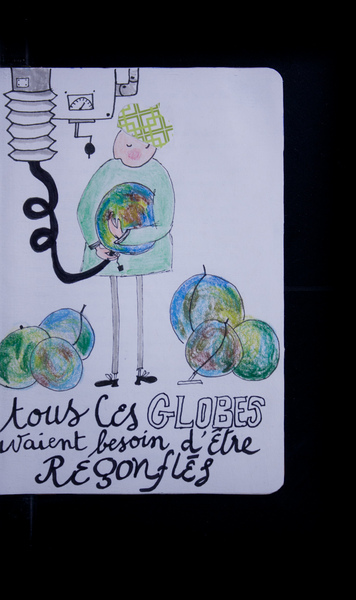 tous ces GLOBES
avaient besoin d'être
REGONFLÉS